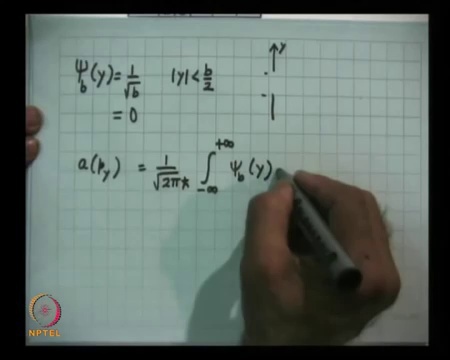 ψ_b(y) = 1/√b  |y| < b/2
= 0
y
a(p_y) = 1/√(2πħ) ∫_{-∞}^{+∞} ψ_b(y)
NPTEL